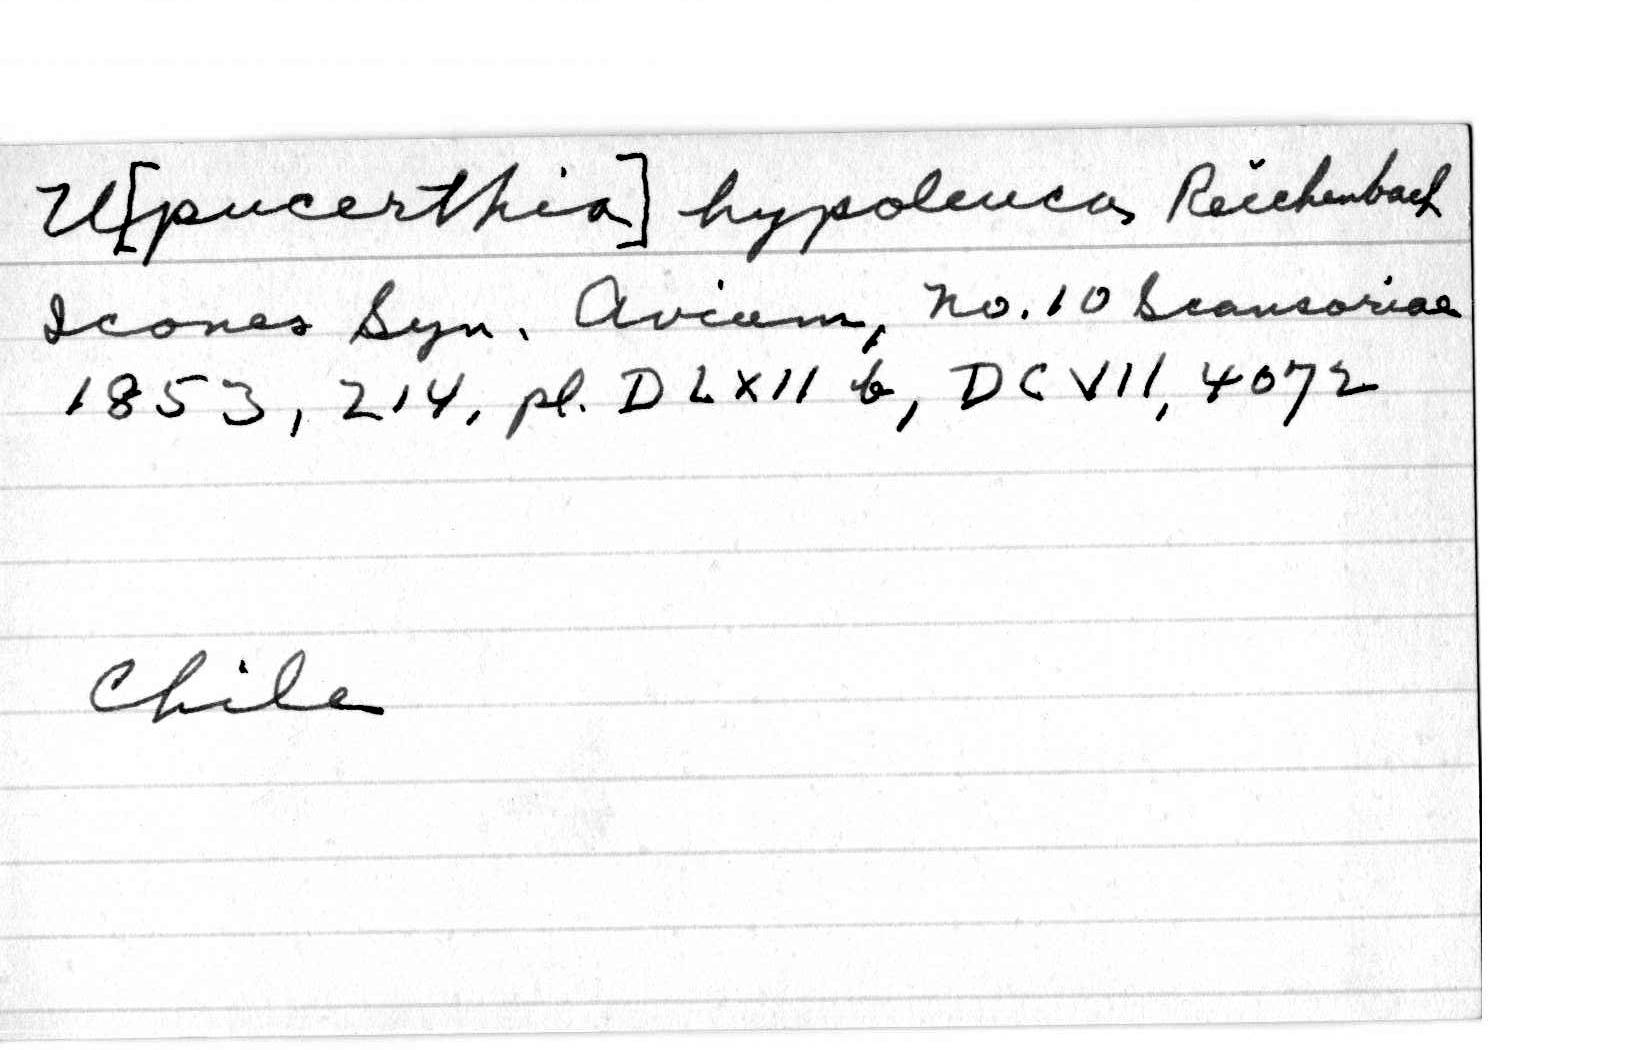 U[pucerthia] hypoleuca Reichenbach
Icones Syn. Avium, no. 10 Scansoriae
1853, 214, pl. DLXII b, DCVII, 4072
Chile